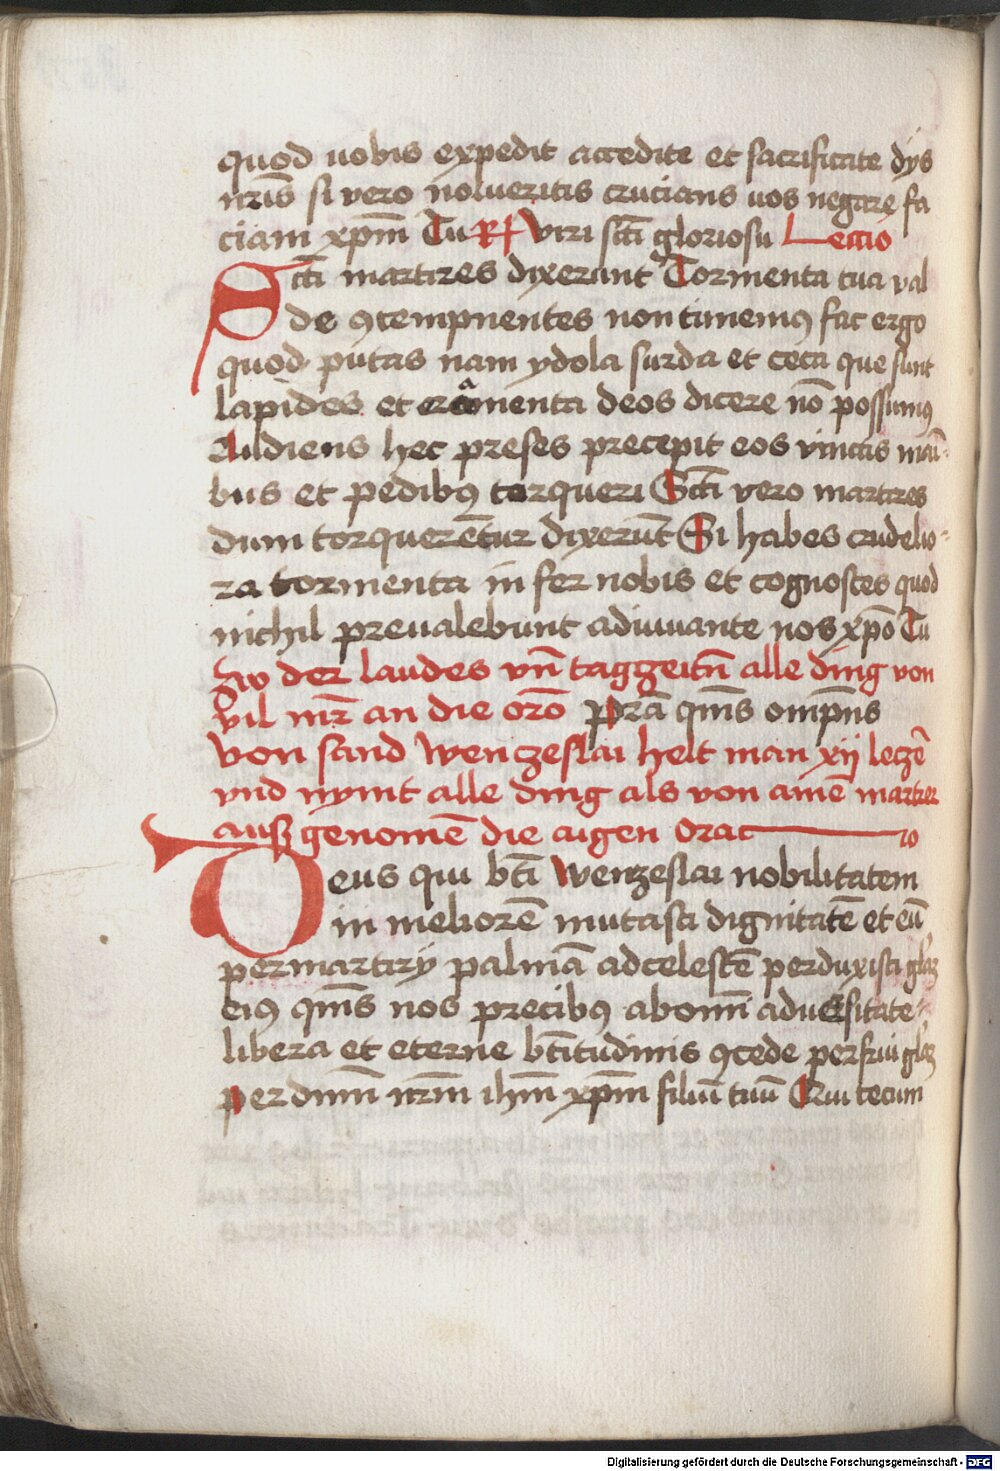 quod uobis expedit accedite et sacrificate dys
nr̄is si vero nolueritis crucians uos negare fa
ciam xp̄m Tu R Viri sc̄ti gloriosu Leccio
Scti martires dixerunt Tormenta tua val
de ꝯtempnentes non timemꝰ fac ergo
quod putas nam ydola surda et ceca que sunt
lapides et eramenta deos dicere nō possumꝰ
Audiens hec preses precepit eos vinctis mani-
bus et pedibꝰ torqueri Sc̄ti vero martires
dum torquerentur dixerūt Si habes crudelio-
ra tormenta infer nobis et cognosces quod
nichil preualebunt adiuuante nos xp̄o Tu
Zw der laudes vn̄ taggzeitn̄ alle ding von
vil mr̄ an die orō Pr̄a qm̄s omp̄ns
von sand Wenczeslai helt man xij leczē
vnd nymt alle ding als von ainē martrer
ausz genomē die aigen Oracio
Deus qui bt̄i Wenzeslai nobilitatem
in meliorē mutasti dignitatē et eū
per martirÿ palmā ad celestē perduxisti glaꝫ
eiꝰ qm̄s nos precibꝰ ab om̄i aduersitate
libera et eterne bt̄itudinis ꝯcede perfrui glaꝫ
per dnm̄ nr̄m ihm̄ xp̄m filiū tuū Qui tecum
Digitalisierung gefördert durch die Deutsche Forschungsgemeinschaft - DFG